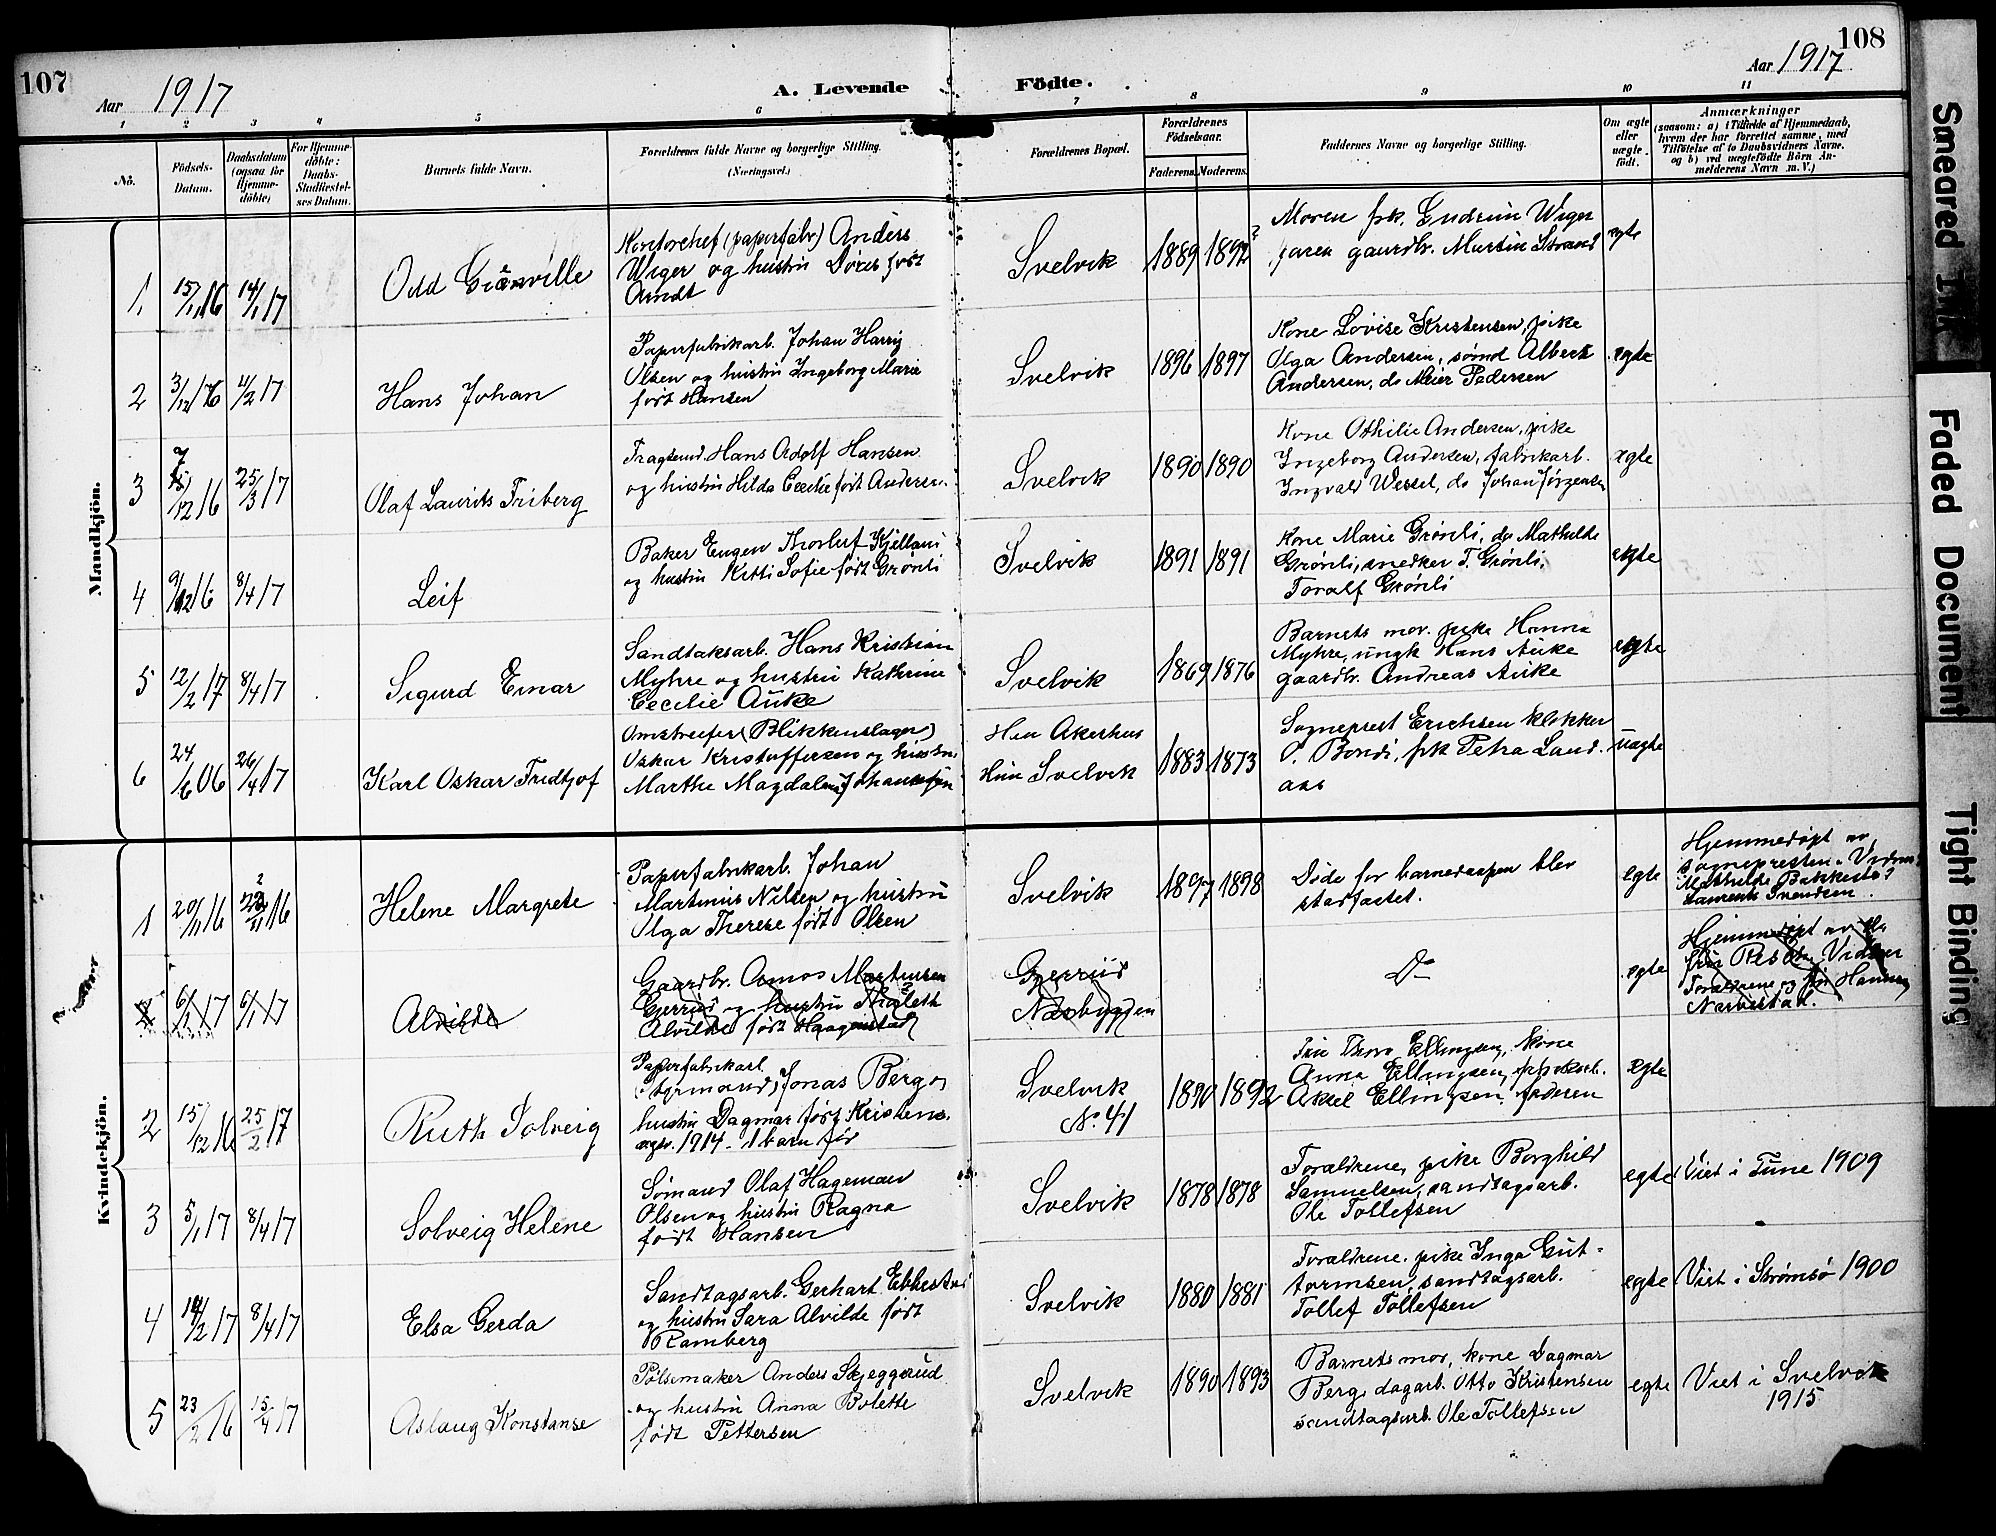 107
Aar 1917
A. Levende Födte.
108
Aar 1917
1 2 3 4 5 6 7 8 9 10 11
No.
Födsels-
Datum.
Daabsdatum
(ogsaa for
Hjemme-
döbte)
For Hjemme-
döbte:
Daabs-
Stadfæstel-
ses Datum.
Barnets fulde Navn.
Forældrenes fulde Navne og borgerlige Stilling.
(Næringsvei.)
Forældrenes Bopæl.
Forældrenes
Födselsaar.
Faderens. Moderens.
Faddernes Navne og borgerlige Stilling.
Om ægte
eller
uægte
födt.
Anmærkninger
(saasom: a) i Tilfælde af Hjemmedaab,
hvem der har forrettet samme, med
Tilföielse af to Daabsvidners Navne,
og b) ved uægtefödte Börn An-
melderens Navn m. V.)
Mandkjön.
1
15/11 16
14/1 17
Odd Granville
Kontorchef (papirfabr.) Anders
Wiger og hustru Dores født
Arndt
Svelvik
1889
1892
Moren frk. Gudrun Wiger
faren gaardbr. Martin Strand
egte
2
3/12 16
4/2 17
Hans Johan
Papirfabrikarb. Johan Harry
Olsen og hustru Ingeborg Marie
født Hansen
Svelvik
1896
1897
Kone Lovise Kristensen, pike
Olga Andersen, sømd Albert
Andersen, do Meier Pedersen
egte
3
12 16
25/3 17
Olaf Laurits Friberg
Hans Adolf Hansen
og hustru Hilda Cecilie født Andersen.
Svelvik
1890
1890
Kone Othilie Andersen, pike
Ingeborg Andersen, fabrikarb.
Ingvald Wessel, do Johan Jørgensen
egte
4
9/12 16
8/4 17
Leif
Baker Eugen Thorleif Kjellani
og hustru Kitti Sofie født Grønli
Svelvik
1891
1891
Kone Marie Grønli, do Mathilde
Grønli, snedker T. Grønli,
Toralf Grønli
egte
5
12/2 17
8/4 17
Sigurd Einar
Sandtaksarb. Hans Kristian
Myhre og hustru Kathrine
Cecilie Auke
Svelvik
1869
1876
Barnets mor. pike Hanna
Myhre, ungk Hans Auke
gaardbr. Andreas Auke
egte
6
24/6 06
26/4 17
Karl Oskar Fridtjof
Omstreifer (Blikkenslager)
Oskar Kristoffersen og hustru
Marthe Magdalena Johannesen
Han Akershus
Hun Svelvik
1883
1873
Sogneprest Erichsen klokker
O. Bondi, frk Petra Land
aas
uegte
Kvindekjön.
1
20/11 16
11 16
Helene Margrete
Papirfabrikarb. Johan
Martinius Nilsen og hustru
Olga Therese født Olsen
Svelvik
1897
1898
Døde før barnedaapen blev
stadfæstet.
egte
Hjemmedøpt av
sognepresten. Vidner
Mathilde Bakkestø?
Laurents Svendsen.
2
6/1 17
6/1 17
Alvilde
Gaardbr. Amos Martinsen
Gjerrud og hustru
Alvilde født
Gjerrud
Næsbygden
Do
egte
Hjemmedøpt av
Vidner
Forældrene og
2
15/12 16
25/2 17
Ruth Solveig
Papirfabrikarb.
Jonas Berg og
hustru Dagmar født Kristens.
1914 - 1 barn før
Svelvik
No. 41
1890
1892
Fru Thora Ellingsen, Kone
Anna Ellingsen,
Aksel Ellingsen
egte
3
5/1 17
8/4 17
Solveig Helene
Sømand Olaf Hageman
Olsen og hustru Ragna
født Hansen
Svelvik
1878
1878
Forældrene, pike Borghild
Samuelsen, sandtagsarb.
Ole Tollefsen
egte
Viet i Tune 1909
4
2 17
8/4 17
Elsa Gerda
Sandtagsarb. Gerhart Ebbestad
og hustru Sara Alvilde født
Ramberg
Svelvik
1880
1881
Forældrene. pike Inga Gut-
tormsen, sandtagsarb.
Tollef Tollefsen
egte
Viet i Strømsø 1900
5
23/2 16
15/4 17
Aslaug Konstanse
Pølsemaker Anders Skjeggerud
og hustru Anna Bolette
født Pettersen
Svelvik
1890
1893
Barnets mor, kone Dagmar
Berg, dagarb. Otto Kristensen
sandtagsarb. Ole Tollefsen
egte
Viet i Svelvik
1915
Smeared Ink
Faded Document
Tight Binding